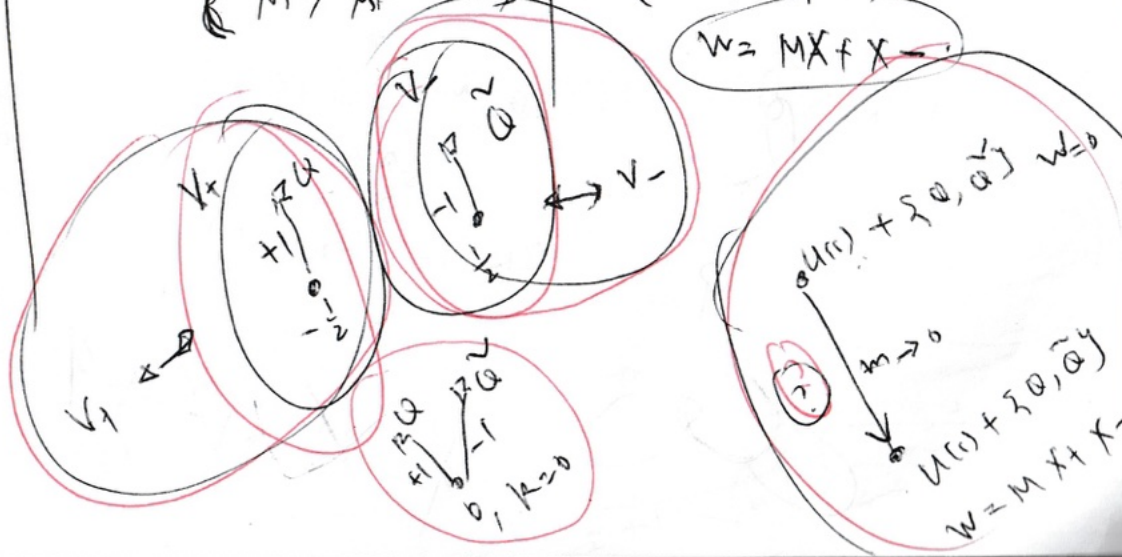 W = MX+X-
V-
Q̃
-1
1/2
V-
V+
Q
+1
-1/2
V+
Q
+1
Q̃
-1
0, k=0
U(1) + {Q, Q̃} W=0
m→0
?
U(1) + {Q, Q̃}
W = M X+ X-